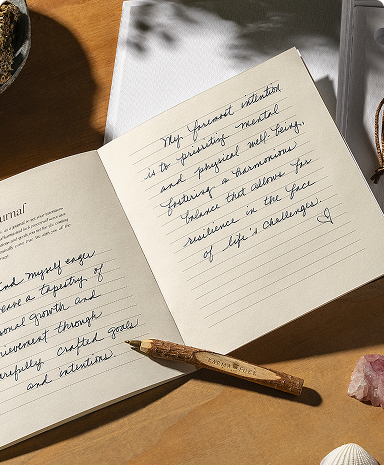 urnal
nd myself eager
eave a tapestry of
sonal growth and
hievement through
arefully crafted goals
and intentions.
My foremost intention
is to prioritize mental
and physical well-being,
fostering a harmonious
balance that allows for
resilience in the face
of life's challenges.
KARMA